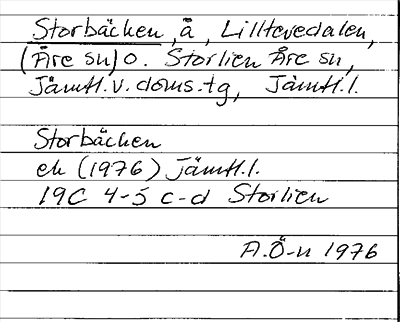 Storbäcken, å, Lilltevedalen,
(Åre sn) o. Storlien Åre sn,
Jämtl. v. doms.-tg, Jämtl. l.
Storbäcken
ek (1976) Jämtl. l.
19C 4-5 c-d Storlien
A.Ö-n 1976